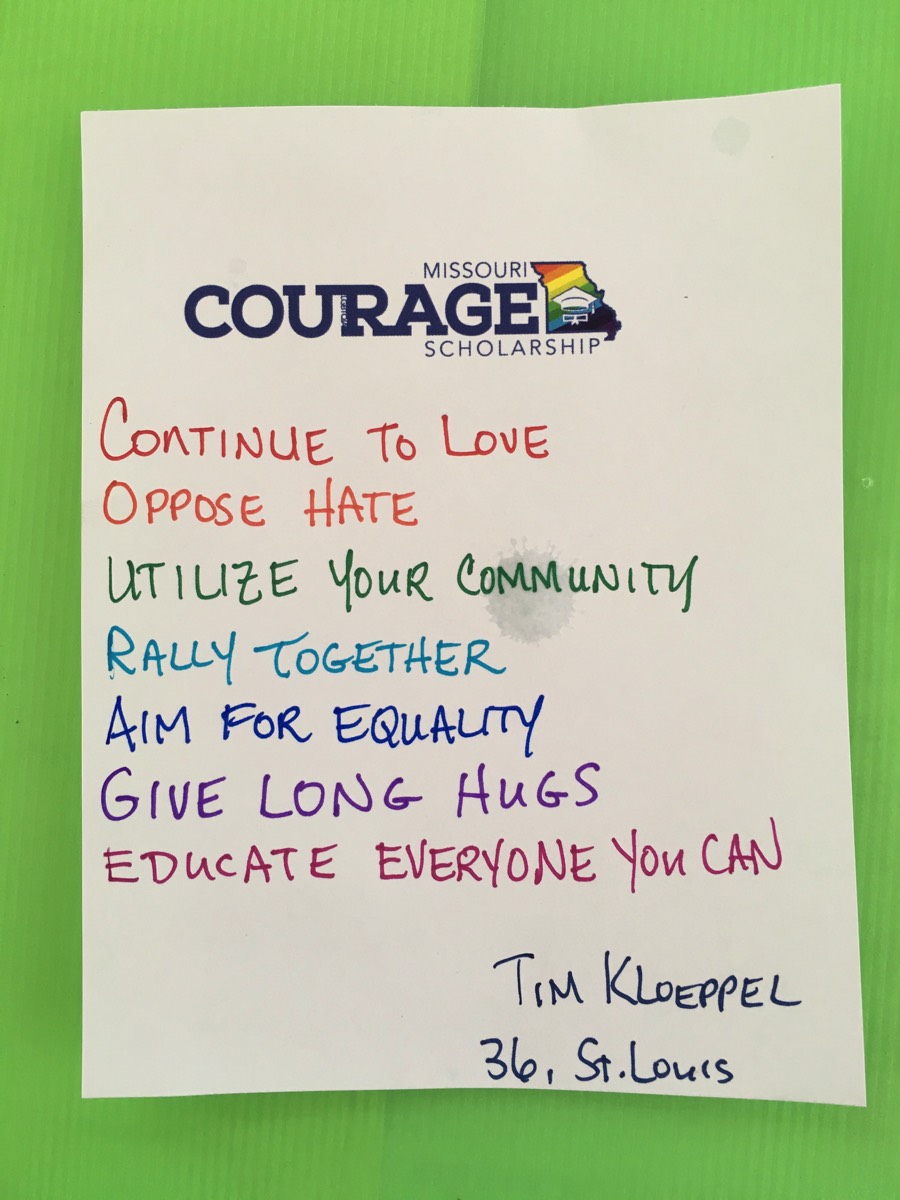 MISSOURI
COURAGE
SCHOLARSHIP
CONTINUE TO LOVE
OPPOSE HATE
UTILIZE YOUR COMMUNITY
RALLY TOGETHER
AIM FOR EQUALITY
GIVE LONG HUGS
EDUCATE EVERYONE YOU CAN
TIM KLOEPPEL
36, St. Louis